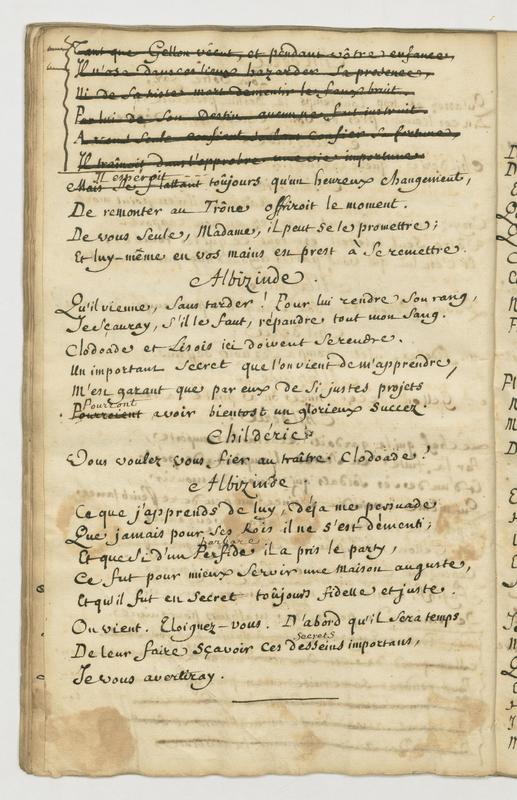 Tant que Gellon vécut, et pendant vôtre enfance,
Il n'osa dans ces lieux hazarder sa presence,
Ni de sa mort démentir le faux bruit.
Par lui de son Destin aucun ne fut instruit.
A vous seule confier sa fortune
Il traînoit dans l'opprobre une vie importune
Il esperoit
Mais se flattant toûjours qu'un heureux changement,
De remonter au Trône offriroit le moment.
De vous seule, Madame, il peut se le promettre;
Et luy-même en vos mains est prest à se remettre.
Albizinde.
Qu'il vienne, sans tarder! Pour lui rendre son rang,
Je sçauray, s'il le faut, répandre tout mon sang.
Clodoade et Lisois ici doivent se rendre.
Un important secret que l'on vient de m'apprendre,
M'est garant que par eux de si justes projets
Pourront
Pourroient avoir bientost un glorieux succez.
Childéric
Vous voulez vous fier au traître Clodoade!
Albizinde.
Ce que j'apprends de luy, déja me persuade
Que jamais pour ses Rois il ne s'est démenti;
barbare
Et que si d'un Perfide il a pris le party,
Ce fut pour mieux servir une maison auguste,
Et qu'il fut en secret toûjours fidelle et juste.
On vient. Eloignez-vous. D'abord qu'il sera temps
secrets
De leur faire sçavoir ces desseins importans,
Je vous avertiray.